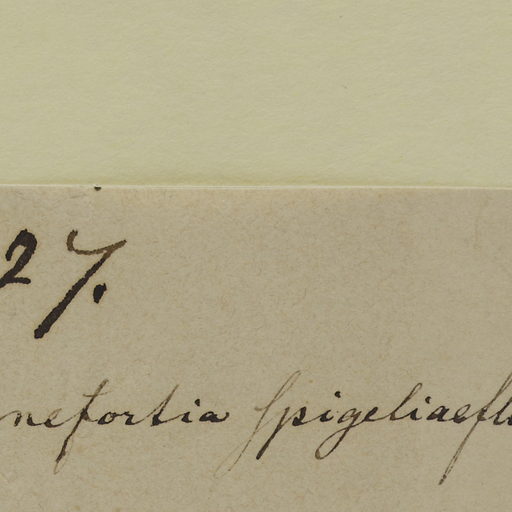 27.
nefortia spigeliaefl